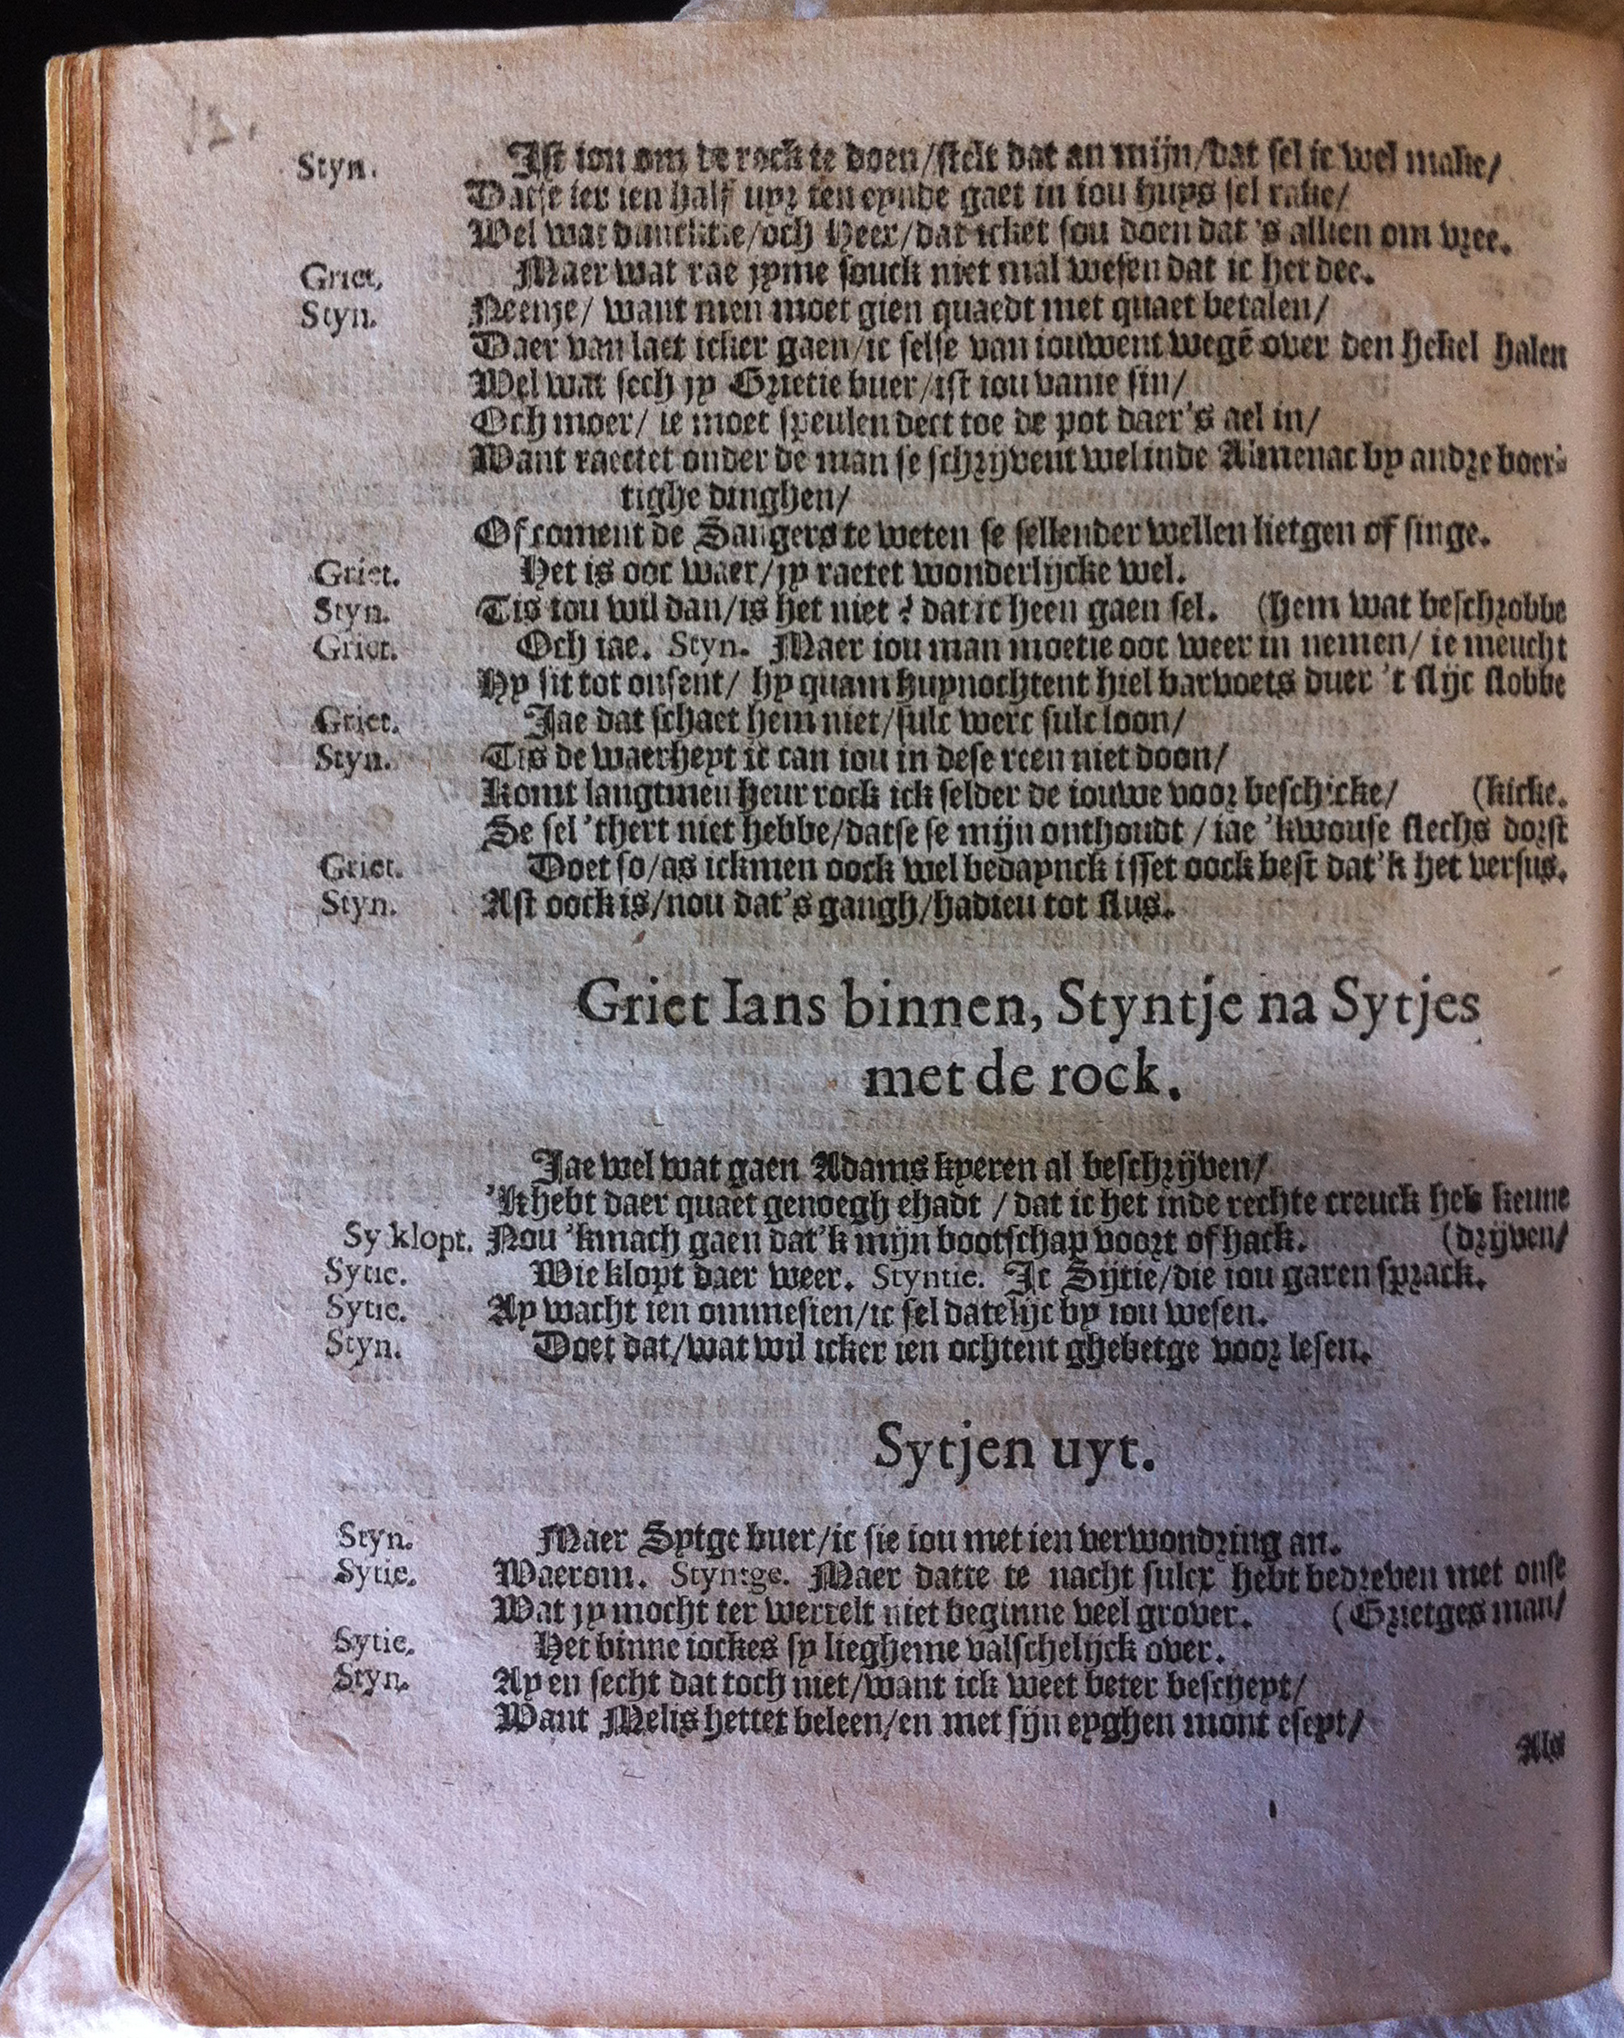 13.
Styn. Ist iou om de rock te doen/stelt dat an mijn/dat sel ic wel make/
Datse ier ien half uyr ten eynde gaet in iou huys sel rake/
Wel wat dunckttie/och Heer/dat icket sou doen dat 's allien om vree.
Griet. Maer wat rae jyme souck niet mal wesen dat ic het dee.
Styn. Neenje/ want men moet gien quaedt met quaet betalen/
Daer van laet icker gaen/ic selse van iouwent wegē over den hekel halen
Wel wat sech jy Grietie buer/ist iou vanie sin/
Och moer/ ie moet speulen dect toe de pot daer's ael in/
Want raectet onder de man se schrijvent wel inde Almenac by andre boer-
tighe dinghen/
Of coment de Sangers te weten se sellender wellen lietgen of singe.
Griet. Het is ooc waer/jy raetet wonderlijcke wel.
Styn. Tis iou wil dan/is het niet? dat ic heen gaen sel. (hem wat beschrobbe
Griet. Och iae. Styn. Maer iou man moetie ooc weer in nemen/ ie meucht
Hy sit tot onsent/ hy quam huynochtent hiel barvoets duer 't slijc slobbe
Griet. Jae dat schaet hem niet/sulc werc sulc loon/
Styn. Tis de waerheyt ic can iou in dese reen niet doon/
Komt langtmen heur rock ick selder de iouwe voor beschicke/ (kicke.
Se sel 'thert niet hebbe/datse se mijn onthoudt / iae 'kwouse slechs dorst
Griet. Doet so/as ickmen oock wel bedaynck isset oock best dat'k het versus.
Styn. Ast oock is/nou dat's gangh/hadieu tot flus.
Griet Ians binnen, Styntje na Sytjes
met de rock.
Jae wel wat gaen Adams kyeren al beschrijven/
'K hebt daer quaet genoegh ehadt / dat ic het inde rechte creuck heb keune
Sy klopt. Nou 'kmach gaen dat'k mijn bootschap voort of hack. (drijven/
Sytie. Wie klopt daer weer. Styntie. Ic Sijtie/die iou garen sprack.
Sytie. Ay wacht ien ommesien/ic sel datelijc by iou wesen.
Styn. Doet dat/wat wil icker ien ochtent ghebetge voor lesen.
Sytjen uyt.
Styn. Maer Sytge buer/ic sie iou met ien verwondring an.
Sytie. Waerom. Styntge. Maer datte te nacht sulcx hebt bedreven met onse
Wat jy mocht ter werrelt niet beginne veel grover. (Grietges man/
Sytie. Het binne iockes sy liegheme valschelijck over.
Styn. Ay en secht dat toch niet/want ick weet beter bescheyt/
Want Melis hettet beleen/en met sijn eyghen mont eseyt/
Als